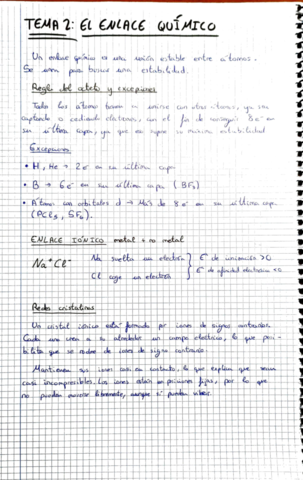 TEMA 2: EL ENLACE QUÍMICO
Un enlace químico es una unión estable entre átomos.
Se unen para buscar una estabilidad.
Regla del octeto y excepciones
Todos los átomos tienen a unirse con otros átomos, ya sea
captando o cediendo electrones, con el fin de conseguir 8e⁻ en
su última capa, ya que es supone su máxima estabilidad
Excepciones
• H, He → 2e⁻ en su última capa
• B → 6e⁻ en su última capa (BF₃)
• Átomos con orbitales d → Más de 8e⁻ en su última capa
(PCl₅, SF₆).
ENLACE IÓNICO metal + no metal
Na⁺Cl⁻ Na suelta un electrón } Eª de ionización >0
Cl coge un electrón } Eª de afinidad electrónica <0
Redes cristalinas
Un cristal iónico está formado por iones de signo contrario.
Cada uno crea a su alrededor un campo eléctrico, lo que posi-
bilita que se rodee de iones de signo contrario
Mantienen sus iones casi en contacto, lo que explica que sean
casi incompresibles. Los iones están en posiciones fijas, por lo que
no pueden moverse libremente, aunque sí pueden vibrar.